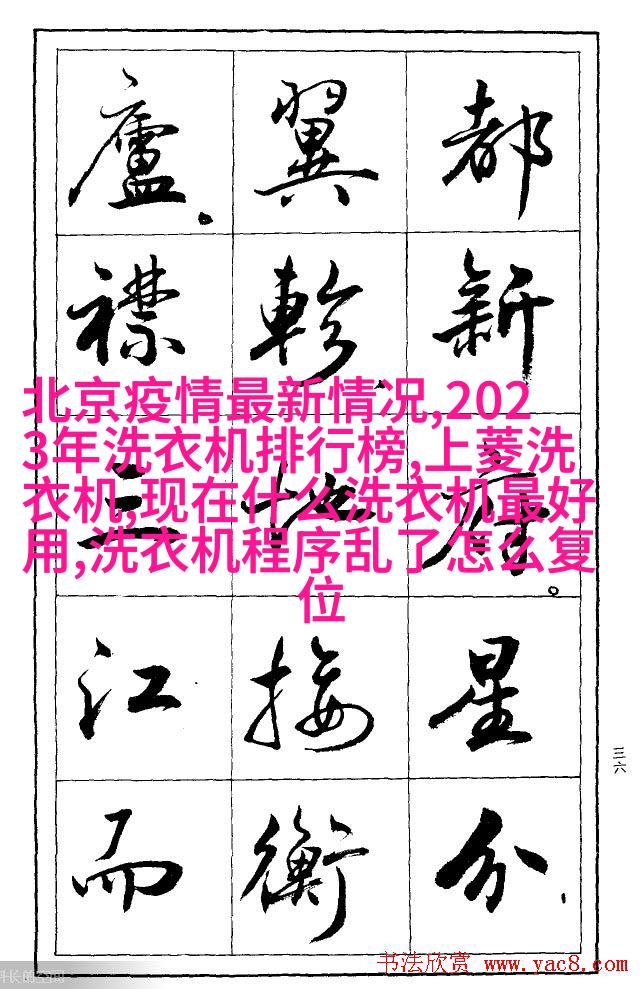 都新府。星分
翼軫,地接衡
廬。襟三江而
北京疫情最新情况,202
3年洗衣机排行榜,上菱洗
衣机,现在什么洗衣机最好
用,洗衣机程序乱了怎么复
位
三六
书法欣赏 www.yac8.com
长的空间